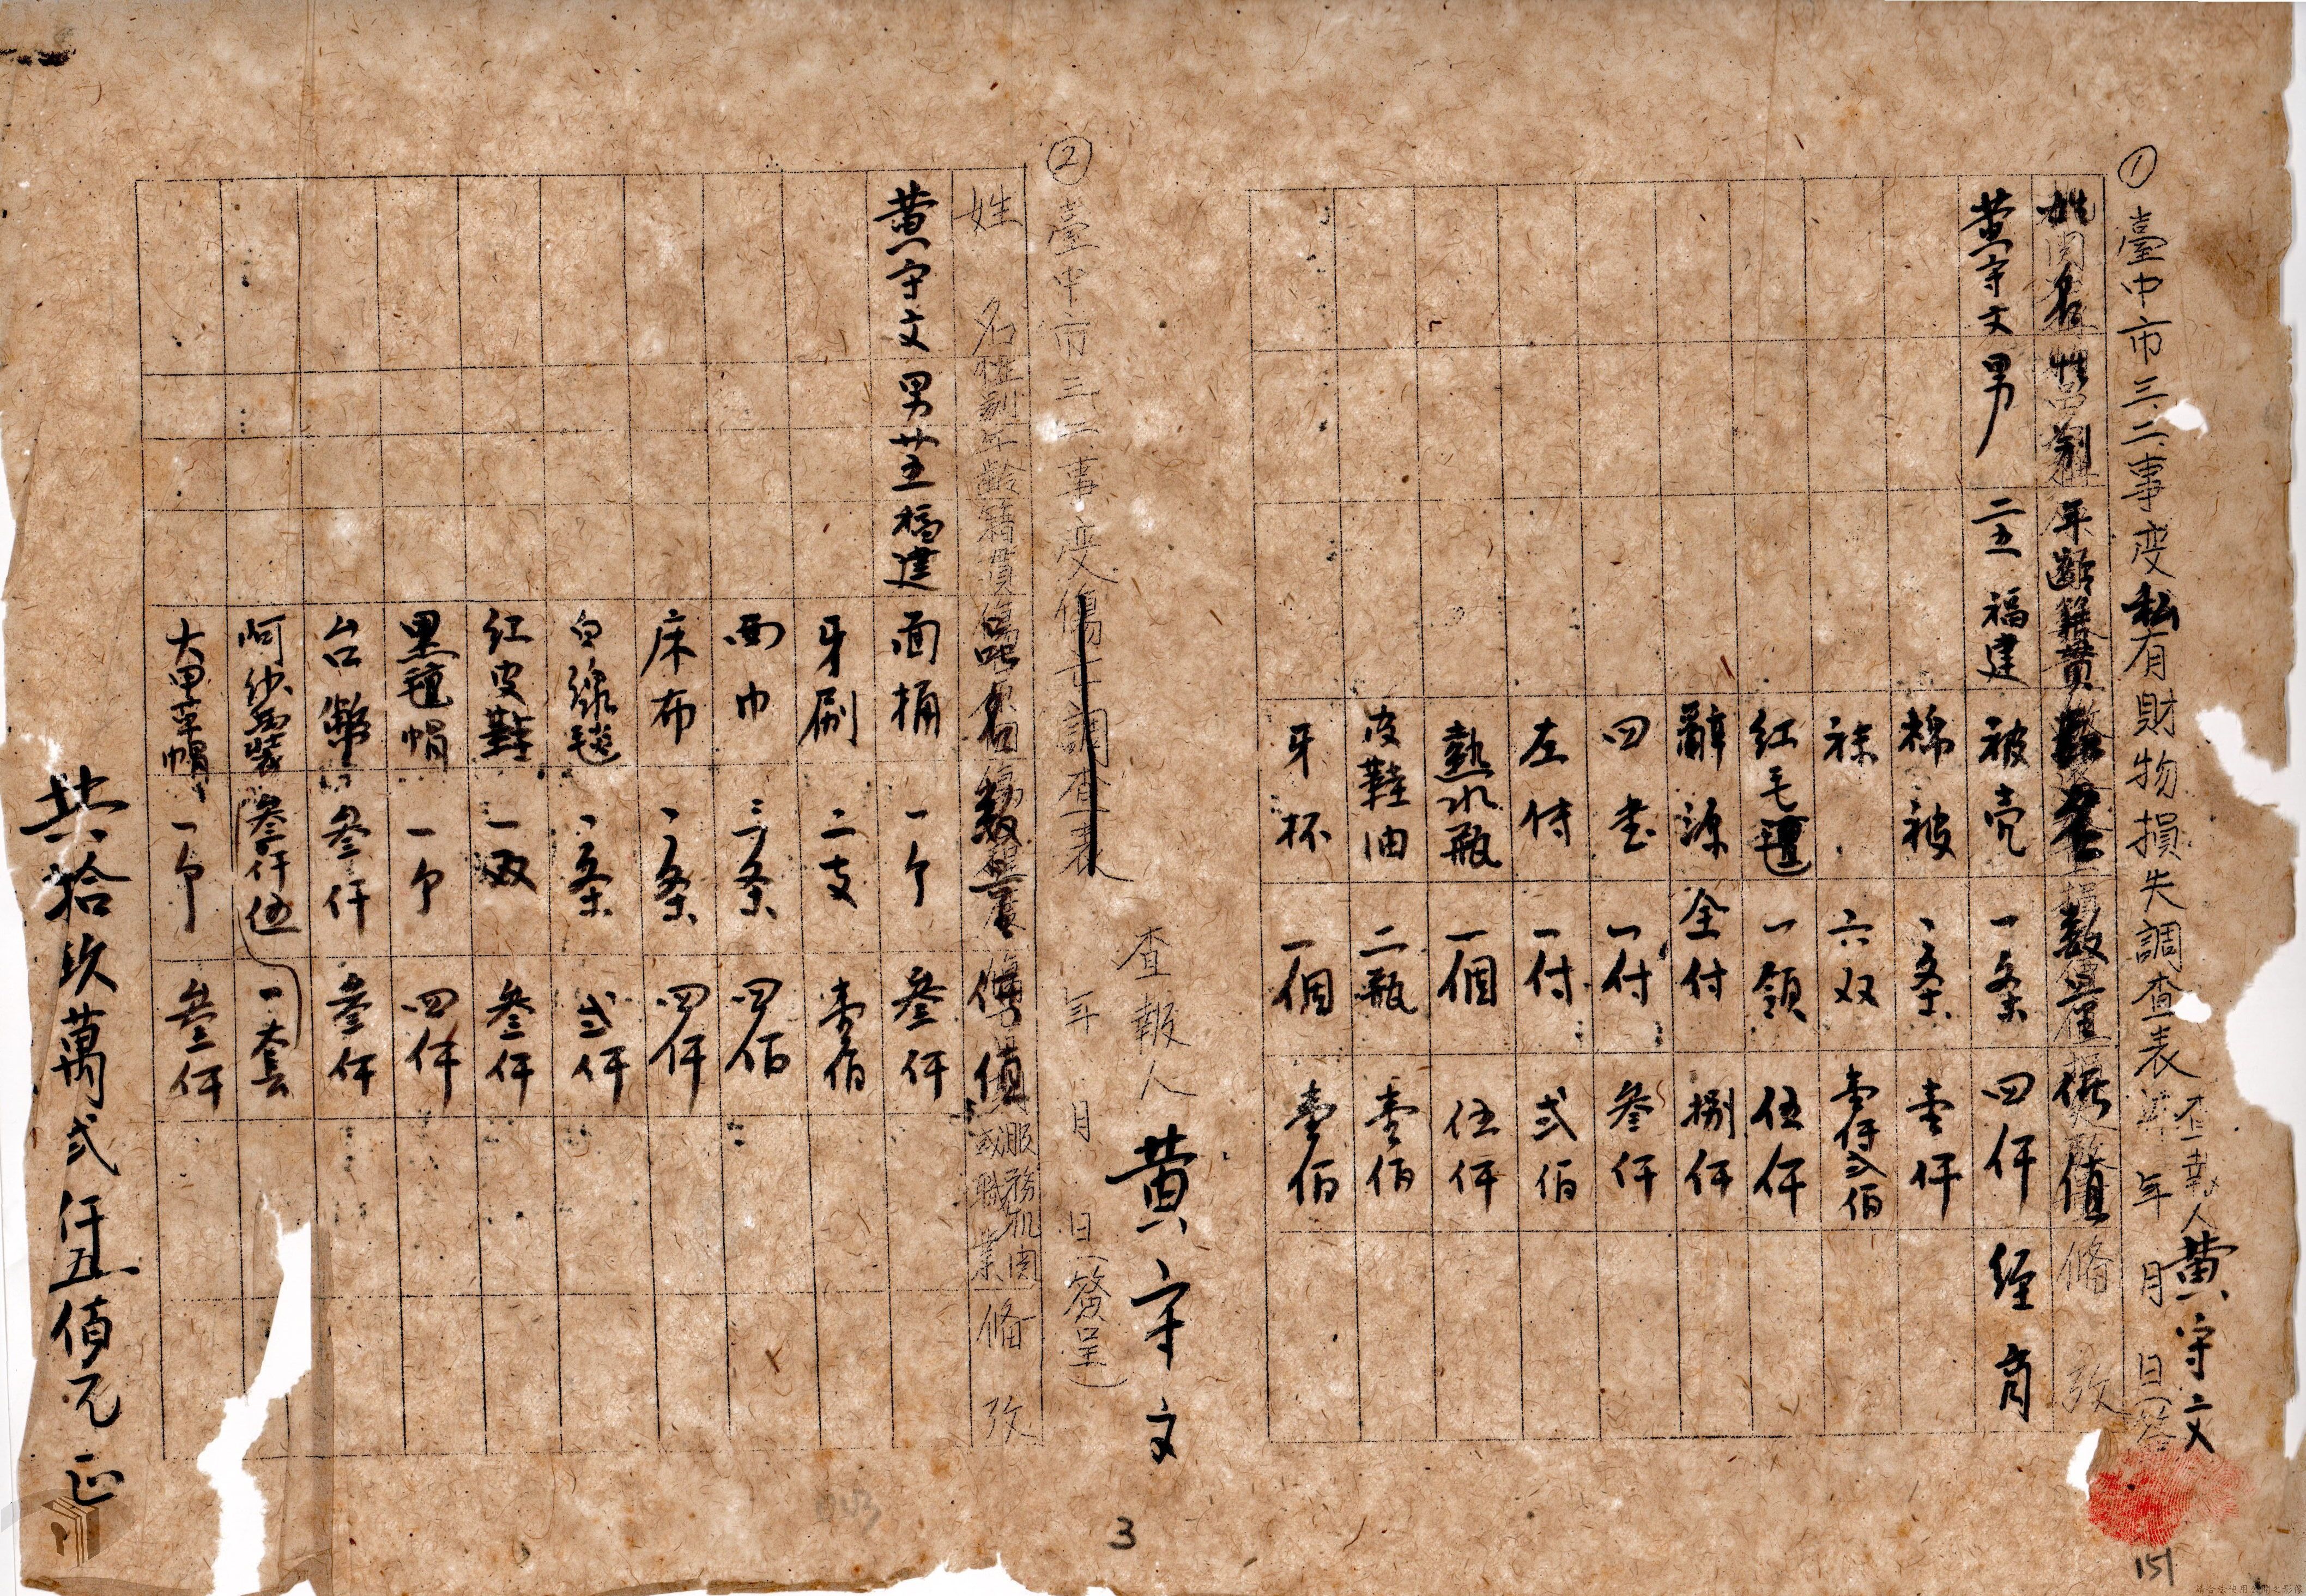 ①臺中市三.二.事変私有財物損失調查表 年 月 日
查報人黄守文
姓名 性別 年齡 籍貫 品名 数量 價值 俻攷
黄守文 男 二五 福建 被壳 一条 四仟 經商
棉被 一条 壹仟
襪 六双 壹仟弍佰
紅毛氊 一領 伍仟
辭源 全付 捌仟
四書 一付 叁仟
左傳 一付 弍佰
熱水瓶 一個 伍仟
皮鞋油 二瓶 壹佰
牙杯 一個 壹佰
查報人 黄守文
②臺中市三.二.事变傷亡調查表 年 月 日(簽呈)
姓名 性别 年齡 籍貫 品名 数量 價值 服務机関或職業 俻攷
黄守文 男 廿五 福建 面桶 一个 叁仟
牙刷 二支 壹佰
面巾 三条 四佰
床布 一条 四仟
白線毯 一条 弍仟
紅皮鞋 一双 叁仟
黑氊帽 一个 四仟
台幣 叁仟 叁仟
呵沙西裝 叁仟伍 一套
大甲草帽 一个 叁仟
共拾玖萬弍仟五佰元正
3
151